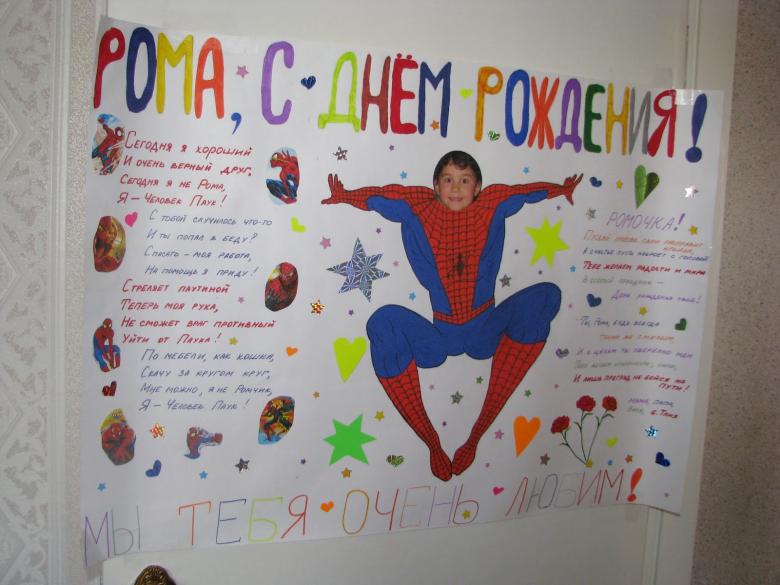 РОМА, С ДНЁМ РОЖДЕНИЯ!
Сегодня я хороший
И очень верный друг,
Сегодня я не Рома,
Я – Человек Паук!
С тобой случилось что-то
И ты попал в беду?
Спасать – моя работа,
На помощь я приду!
Стреляет паутиной
Теперь моя рука,
Не сможет враг противный
Уйти от Паука!
По мебели, как кошка,
Скачу за кругом круг,
Мне можно, я не Ромчик,
Я – Человек Паук!
РОМОЧКА!
Пускай мечта свои расправит
крылья,
А счастье пусть накроет с головой
Тебе желаем радости и мира
В особый праздник –
День рождения твой!
Ты, Рома, будь всегда
таким же
И к целям ты уверенно иди
Тебе желаем
И лишь преград не бойся на
пути!
мама, папа,
б. Таня
МЫ ТЕБЯ ОЧЕНЬ ЛЮБИМ!